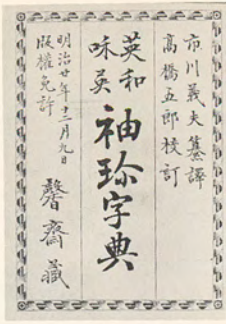 市川義夫纂譯
高橋五郎校訂
英和
咊英
袖珍字典
明治廿年十二月九日
版權免許
馨齋藏